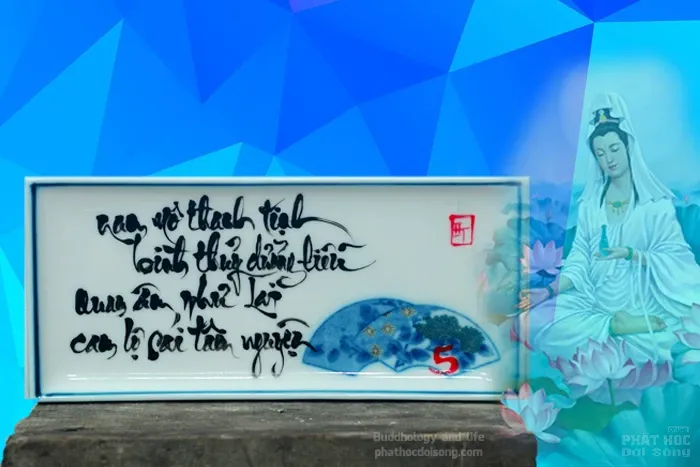 nam mô thanh tịnh
bình thủy dương liễu
Quan âm như Lai
cam lộ sái tâm nguyện
5
Buddhology and life
phathocdoisong.com
PHẬT HỌC
Đời Sống